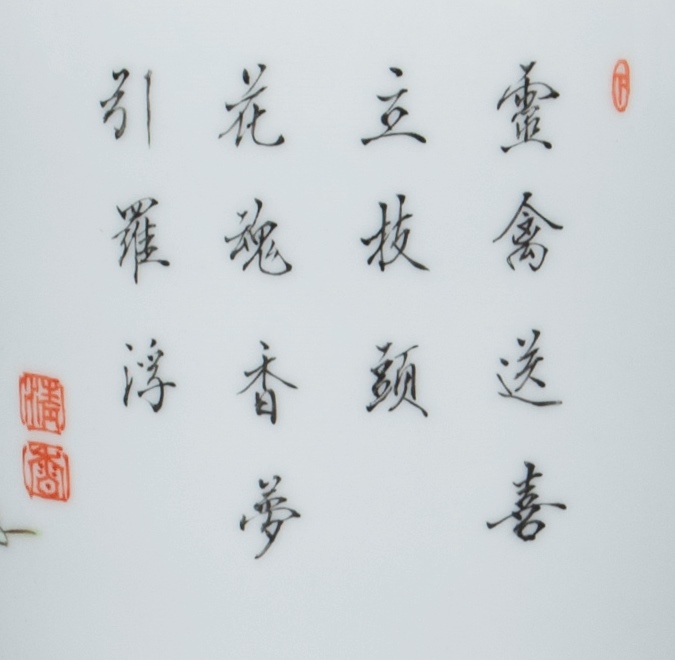 靈禽送喜
立枝頭
花魂香夢
引羅浮
清香